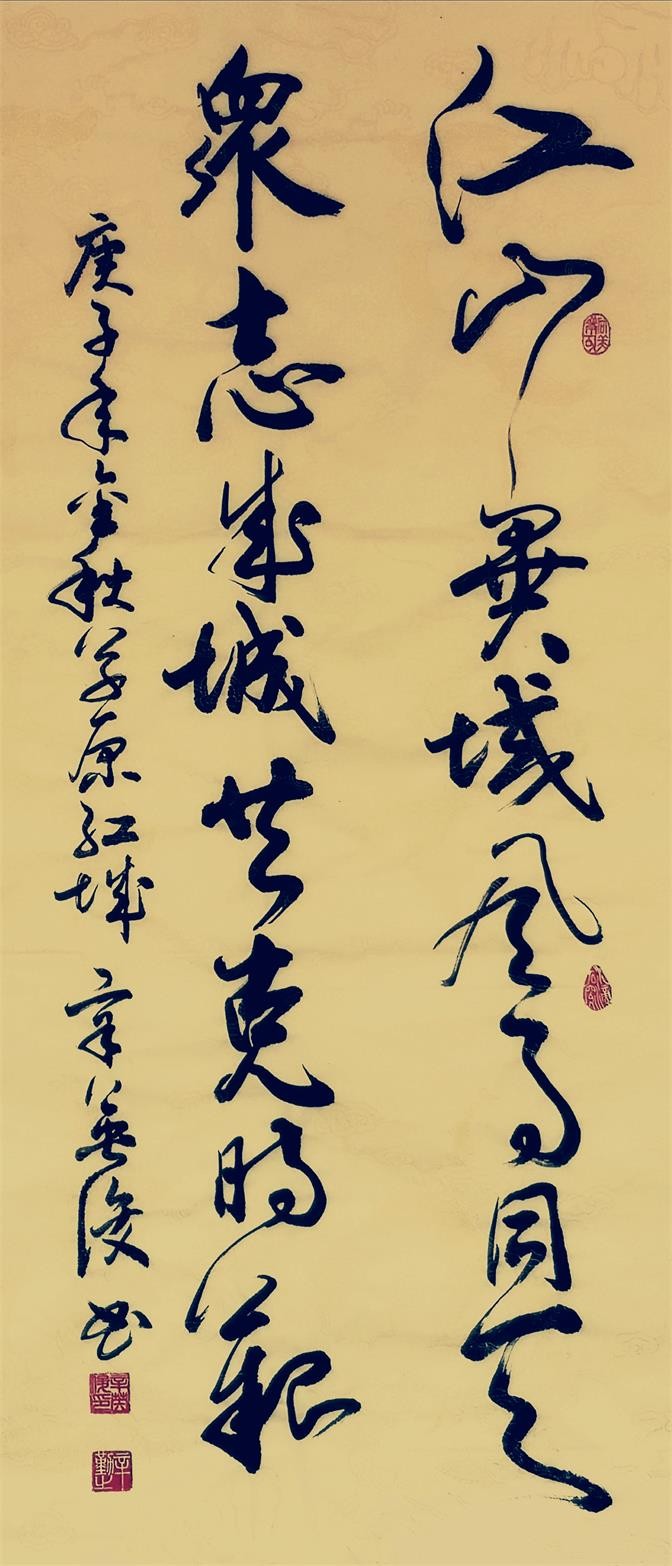 江山異域風雨同天
衆志成城共克時艱
庚子年金秋草原紅城 辛英俊書